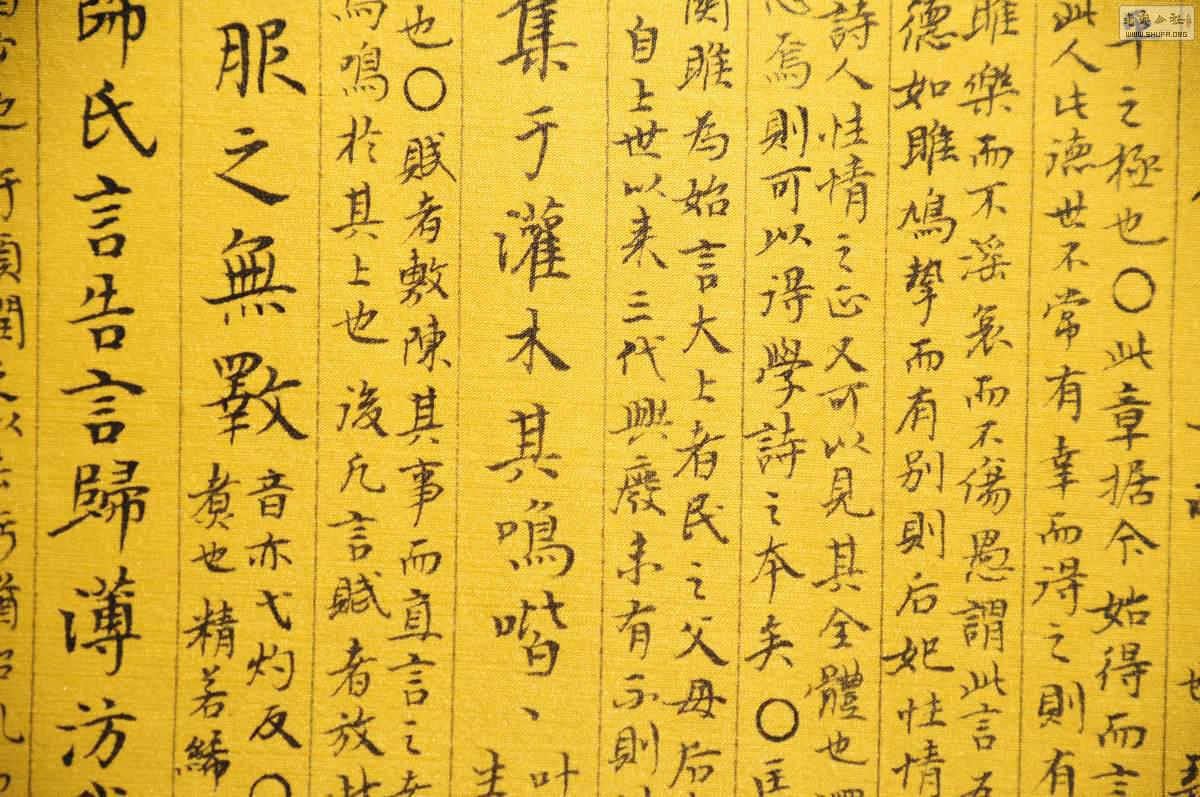 WWW.SHUFA.ORG
之極也〇此章据今始得而言
此人此德世不常有幸而得之則有
雎樂而不淫哀而不傷愚謂此言
德如雎鳩摯而有別則后妃性情
詩人性情之正又可以見其全體也
焉則可以得學詩之本矣〇匡
關雎為始言大上者民之父母后
自上世以来三代興廢未有不則
集于灌木其鳴喈、
叶
也〇賦者敷陳其事而直言之者
鳴於其上也後凡言賦者放此
服之無斁
音亦弋灼反〇
煑也精若絺
師氏言告言歸薄汸